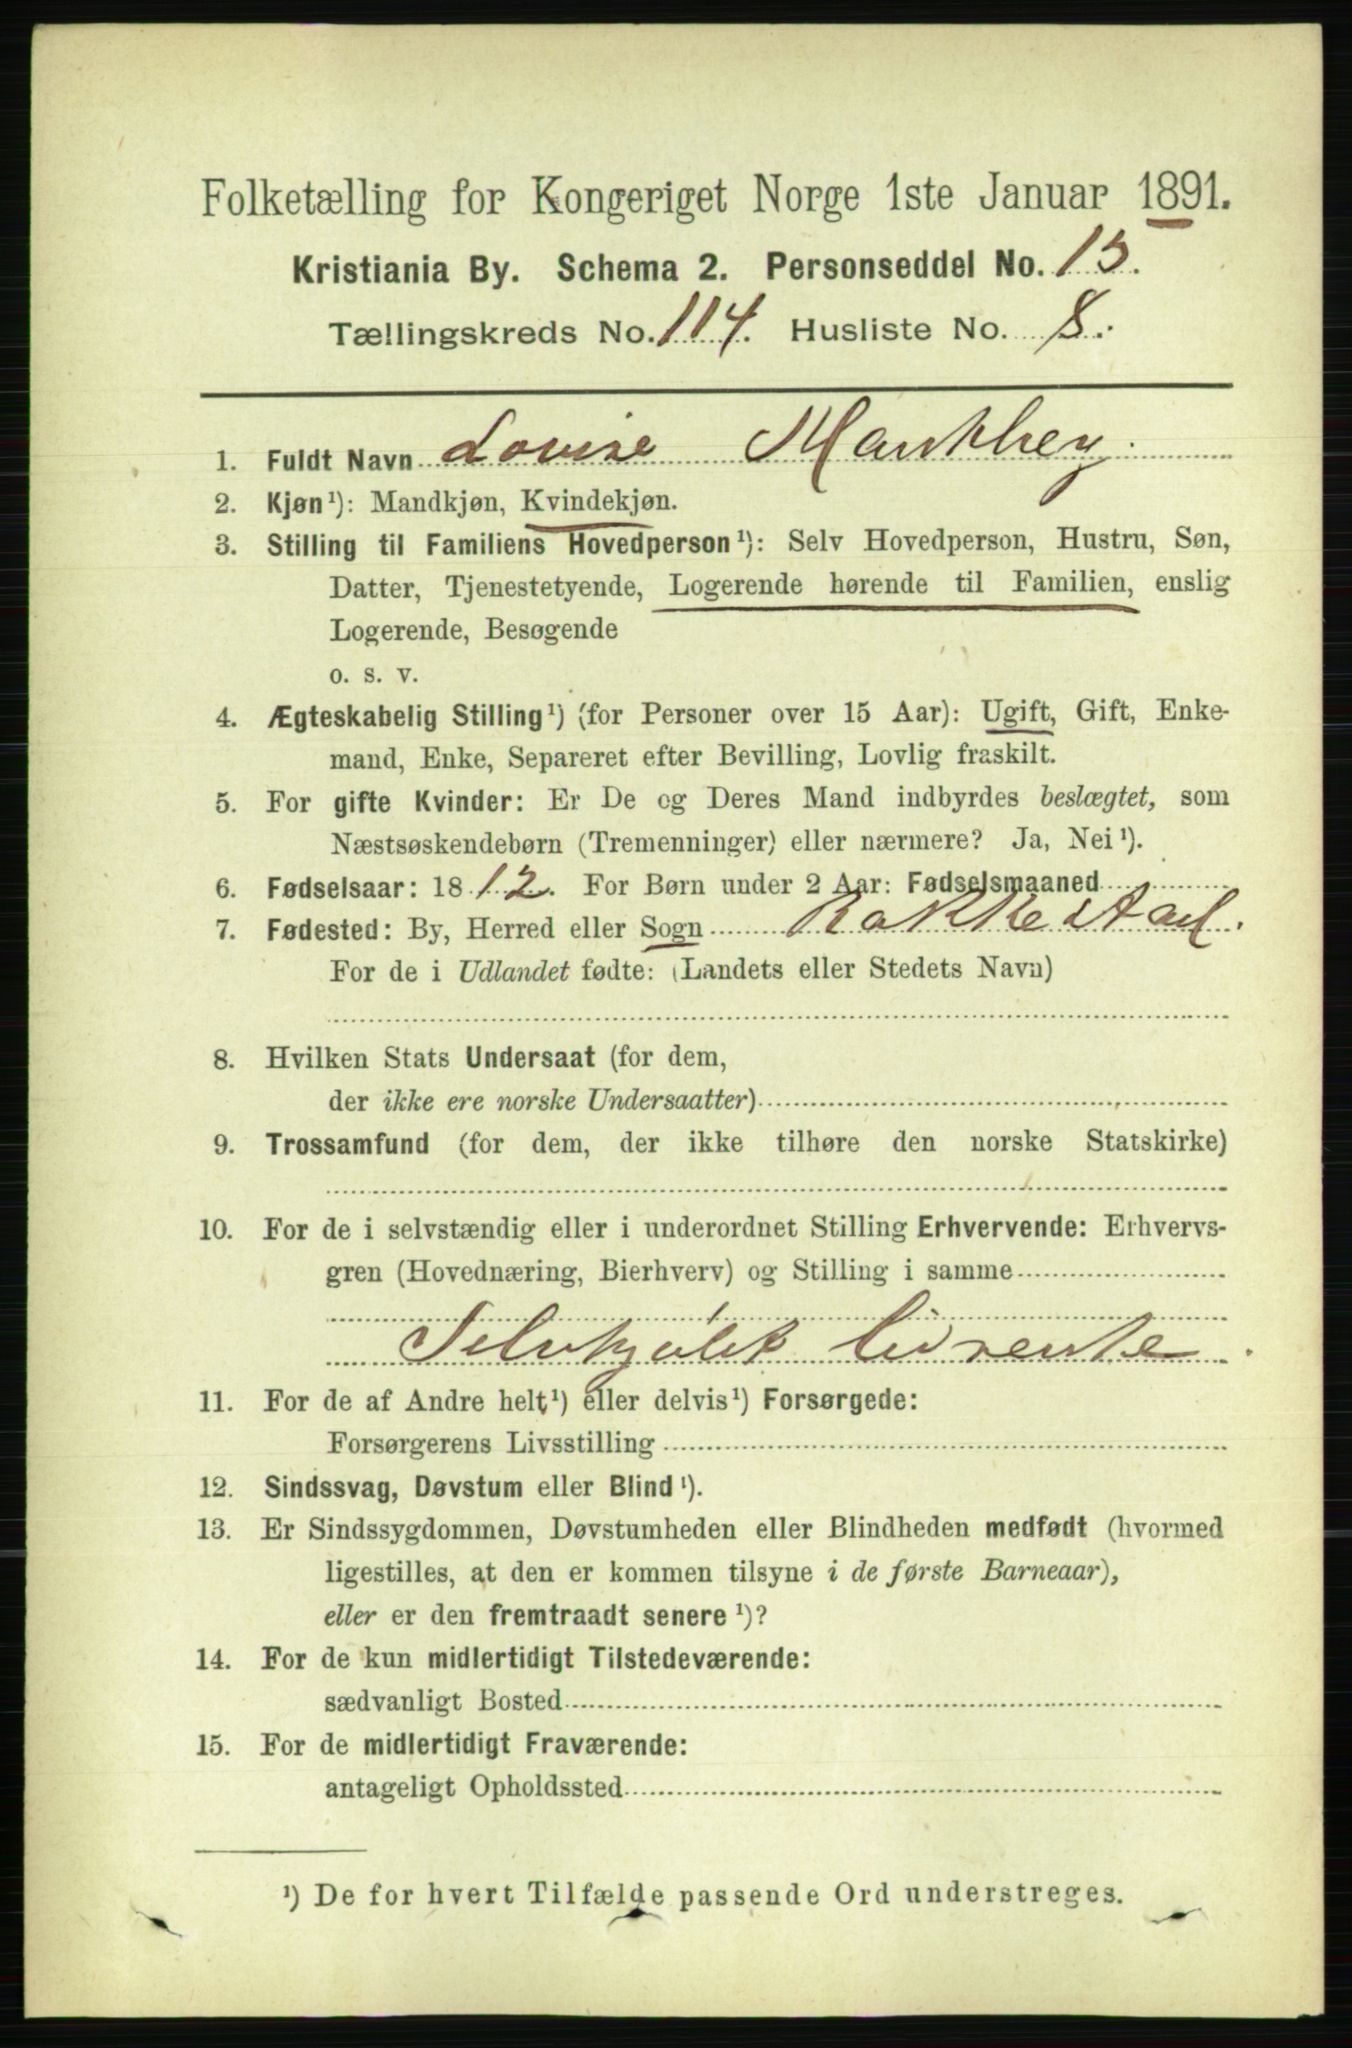 Folketælling for Kongeriget Norge 1ste Januar 1891.
Kristiania By. Schema 2. Personseddel No. 13.
Tællingskreds No. 114. Husliste No. 8.
1. Fuldt Navn Lovise
2. Kjøn¹): Mandkjøn, Kvindekjøn.
3. Stilling til Familiens Hovedperson¹): Selv Hovedperson, Hustru, Søn,
Datter, Tjenestetyende, Logerende hørende til Familien, enslig
Logerende, Besøgende
o. s. v.
4. Ægteskabelig Stilling¹) (for Personer over 15 Aar): Ugift, Gift, Enke-
mand, Enke, Separeret efter Bevilling, Lovlig fraskilt.
5. For gifte Kvinder: Er De og Deres Mand indbyrdes beslægtet, som
Næstsøskendebørn (Tremenninger) eller nærmere? Ja, Nei¹).
6. Fødselsaar: 1812. For Børn under 2 Aar: Fødselsmaaned
7. Fødested: By, Herred eller Sogn Rakkestad.
For de i Udlandet fødte: (Landets eller Stedets Navn)
8. Hvilken Stats Undersaat (for dem,
der ikke ere norske Undersaatter)
9. Trossamfund (for dem, der ikke tilhøre den norske Statskirke)
10. For de i selvstændig eller i underordnet Stilling Erhvervende: Erhvervs-
gren (Hovednæring, Bierhverv) og Stilling i samme
Selvkjøbt Livrente.
11. For de af Andre helt¹) eller delvis¹) Forsørgede:
Forsørgerens Livsstilling
12. Sindssvag, Døvstum eller Blind¹).
13. Er Sindssygdommen, Døvstumheden eller Blindheden medfødt (hvormed
ligestilles, at den er kommen tilsyne i de første Barneaar),
eller er den fremtraadt senere¹)?
14. For de kun midlertidigt Tilstedeværende:
sædvanligt Bosted
15. For de midlertidigt Fraværende:
antageligt Opholdssted
¹) De for hvert Tilfælde passende Ord understreges.